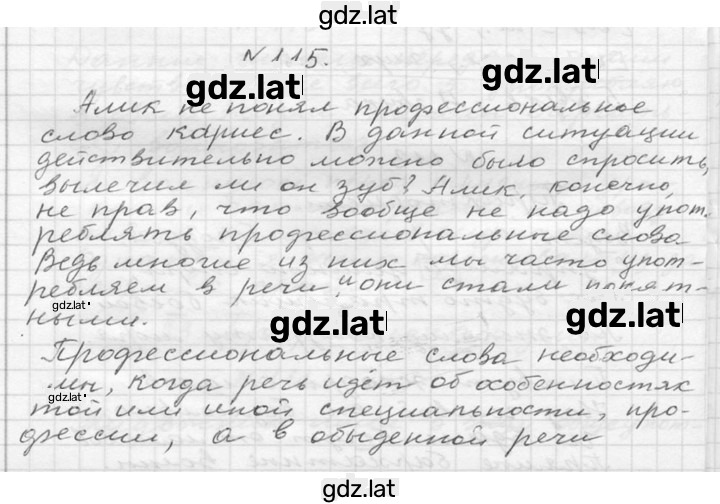 gdz.lat
N 115.
gdz.lat
gdz.lat
Алик не понял профессиональное
слово кариес. В данной ситуации
действительно можно было спросить,
вылечил ли он зуб? Алик, конечно,
не прав, что вообще не надо упот-
реблять профессиональные слова.
Ведь многие из них мы часто упот-
ребляем в речи и они стали понят-
gdz.lat
ными.
gdz.lat
gdz.lat
Профессиональные слова необходи-
мы, когда речь идёт об особенностях
gdz.lat
той или иной специальности, про-
фессии, а в обыденной речи
gdz.lat